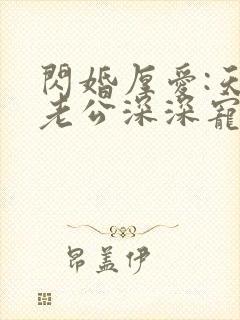 閃婚厚愛:天
老公深深寵
昂盖伊